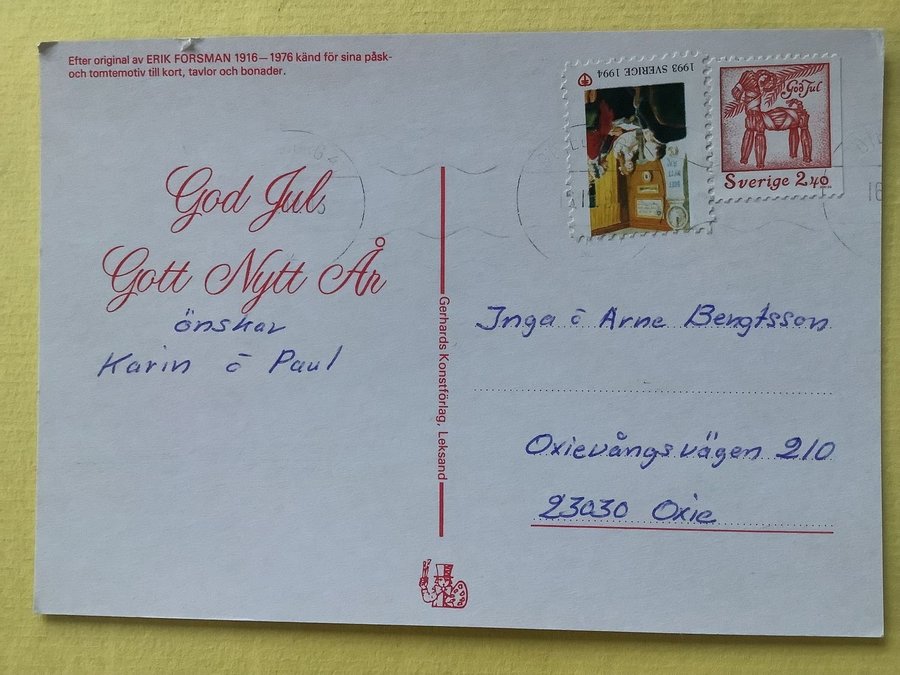 Efter original av ERIK FORSMAN 1916–1976 känd för sina påsk-
och tomtemotiv till kort, tavlor och bonader.
1993 SVERIGE 1994
God Jul
Sverige 2.40
God Jul
Gott Nytt År
önskar
Karin o Paul
Gerhards Konstförlag, Leksand
Inga o Arne Bengtsson
Oxievångsvägen 210
23030 Oxie